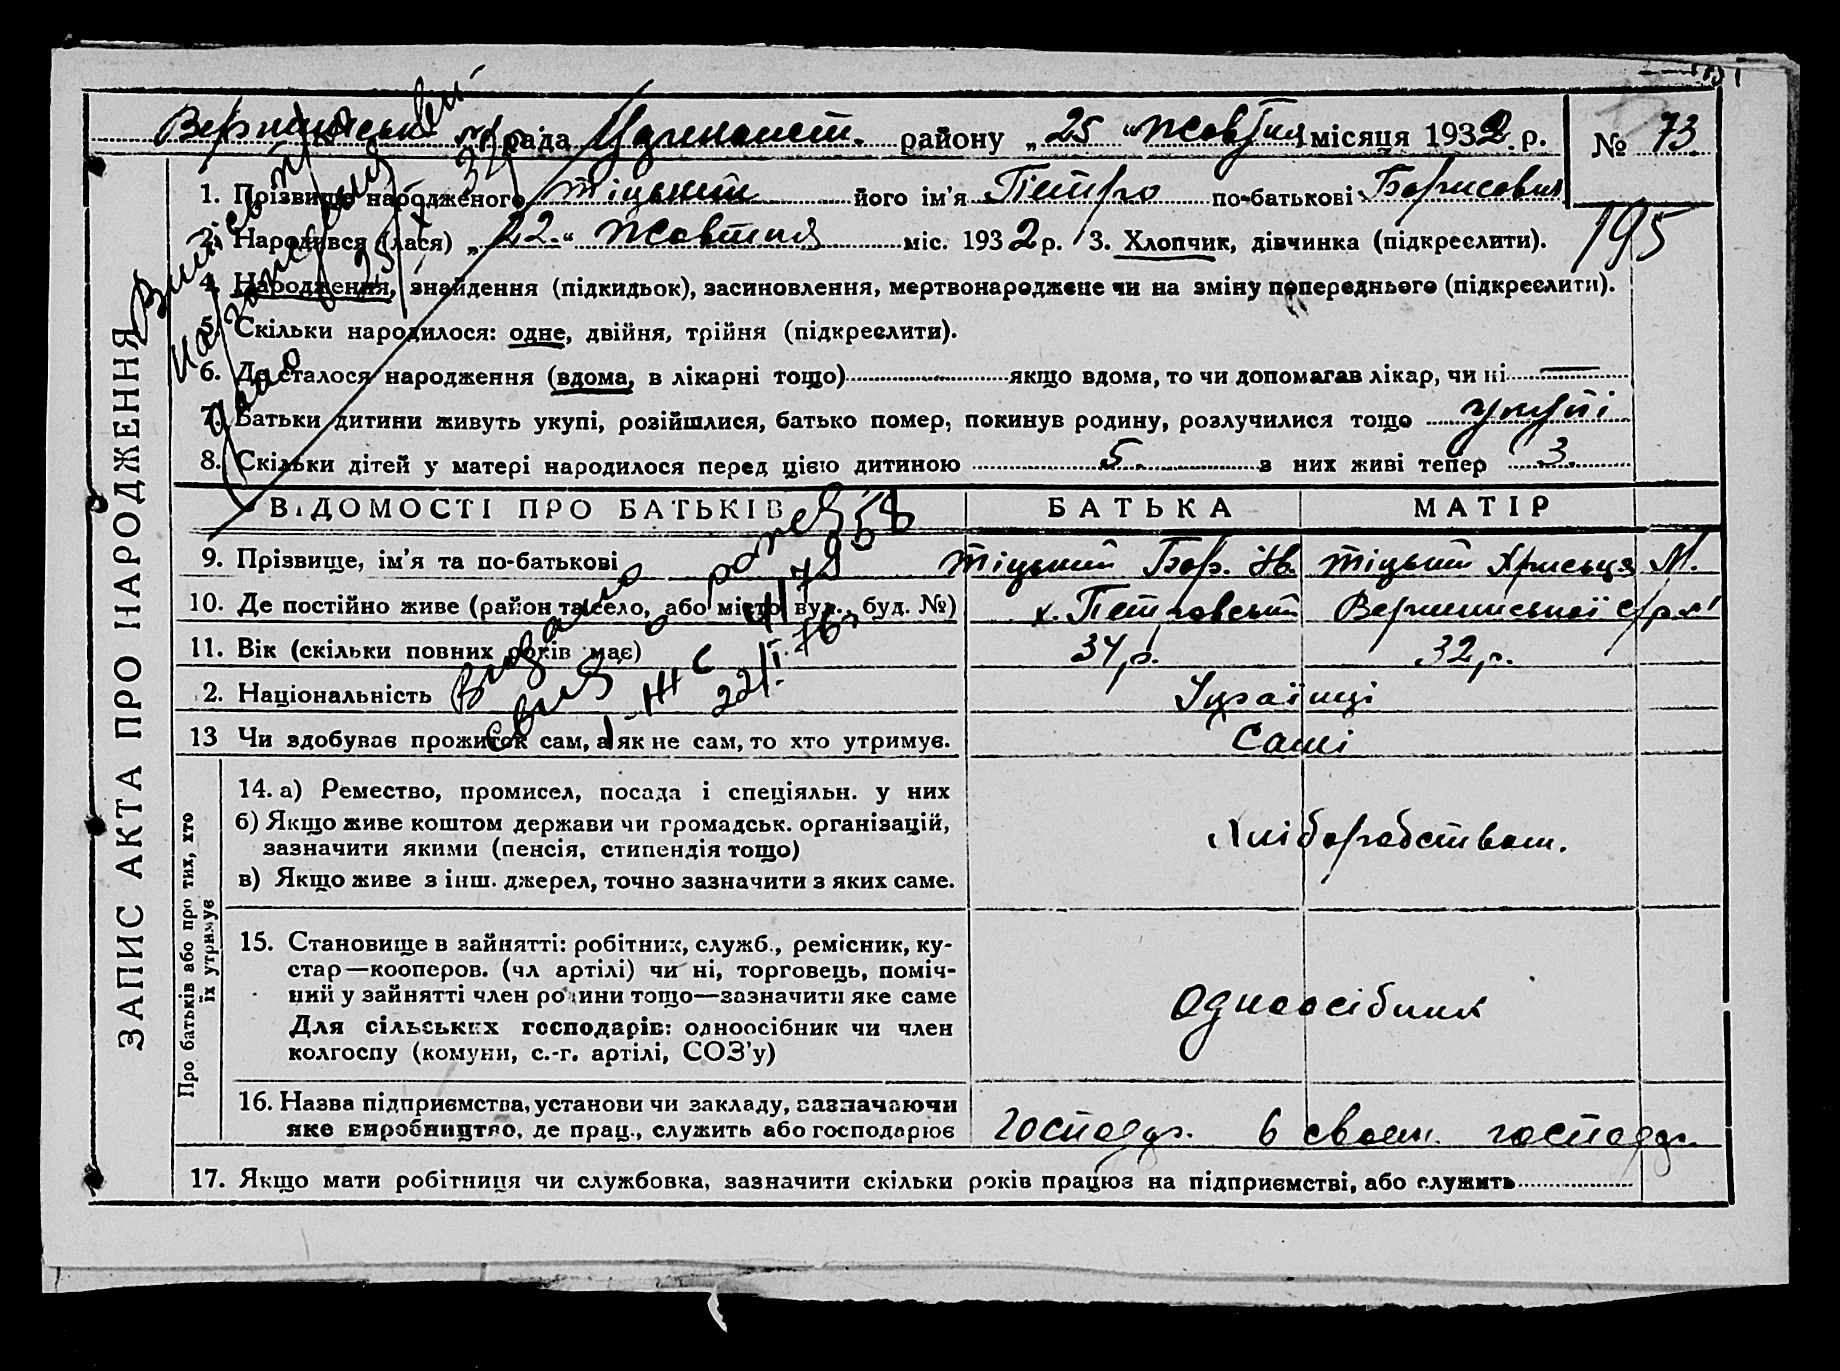 рада района „25" Жовтня місяця 1932 р.
№ 73
195
ЗАПИС АКТА ПРО НАРОДЖЕННЯ
1. Прізвище народженого Тіцький його ім'я Петро по-батькові Борисович
2. Народився (лася) „22" Жовтня міс. 1932 р. 3. Хлопчик, дівчинка (підкреслити).
4. Народження, знайдення (підкидьок), засиновлення, мертвонароджене чи на зміну попереднього (підкреслити).
5. Скільки народилося: одне, двійня, трійня (підкреслити).
6. Де сталося народження (вдома, в лікарні тощо) якщо вдома, то чи допомагав лікар, чи ні —
7. Батьки дитини живуть укупі, розійшлися, батько помер, покинув родину, розлучилися тощо укупі
8. Скільки дітей у матері народилося перед цією дитиною 5. з них живі тепер 3.
ВІДОМОСТІ ПРО БАТЬКІВ БАТЬКА МАТІР
9. Прізвище, ім'я та по-батькові Тіцький Бор. Ів. Тіцький Христя М.
10. Де постійно живе (район та село, або місто вул., буд. №) х. Петровський
11. Вік (скільки повних років має) 34 р. 32 р.
2. Національність Українці
13 Чи здобуває прожиток сам, а як не сам, то хто утримує. Самі
Про батьків або про тих, хто їх утримує
14. а) Ремество, промисел, посада і спеціяльн. у них
б) Якщо живе коштом держави чи громадськ. організацій,
зазначити якими (пенсія, стипендія тощо)
в) Якщо живе з інш. джерел, точно зазначити з яких саме.
Хліборобством.
15. Становище в зайнятті: робітник, служб., ремісник, ку-
стар—кооперов. (чл артілі) чи ні, торговець, поміч-
ний у зайнятті член родини тощо—зазначити яке саме
Для сільських господарів: одноосібник чи член
колгоспу (комуни, с.-г. артілі, СОЗ'у)
Одноосібник
16. Назва підприємства, установи чи закладу, зазначаючи
яке виробництво, де прац., служить або господарює Господар. в своєм. господар.
17. Якщо мати робітниця чи службовка, зазначити скільки років працює на підприємстві, або служить